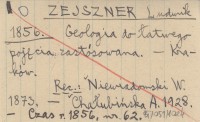 O ZEJSZNER Ludwik
1856. Geologia do łatwego
pojęcia zastosowana. — Kra-
ków.
Rec.: Niewiadowski W.
1873. — Chałubińska A. 1928.
— Czas r. 1856, nr. 62.